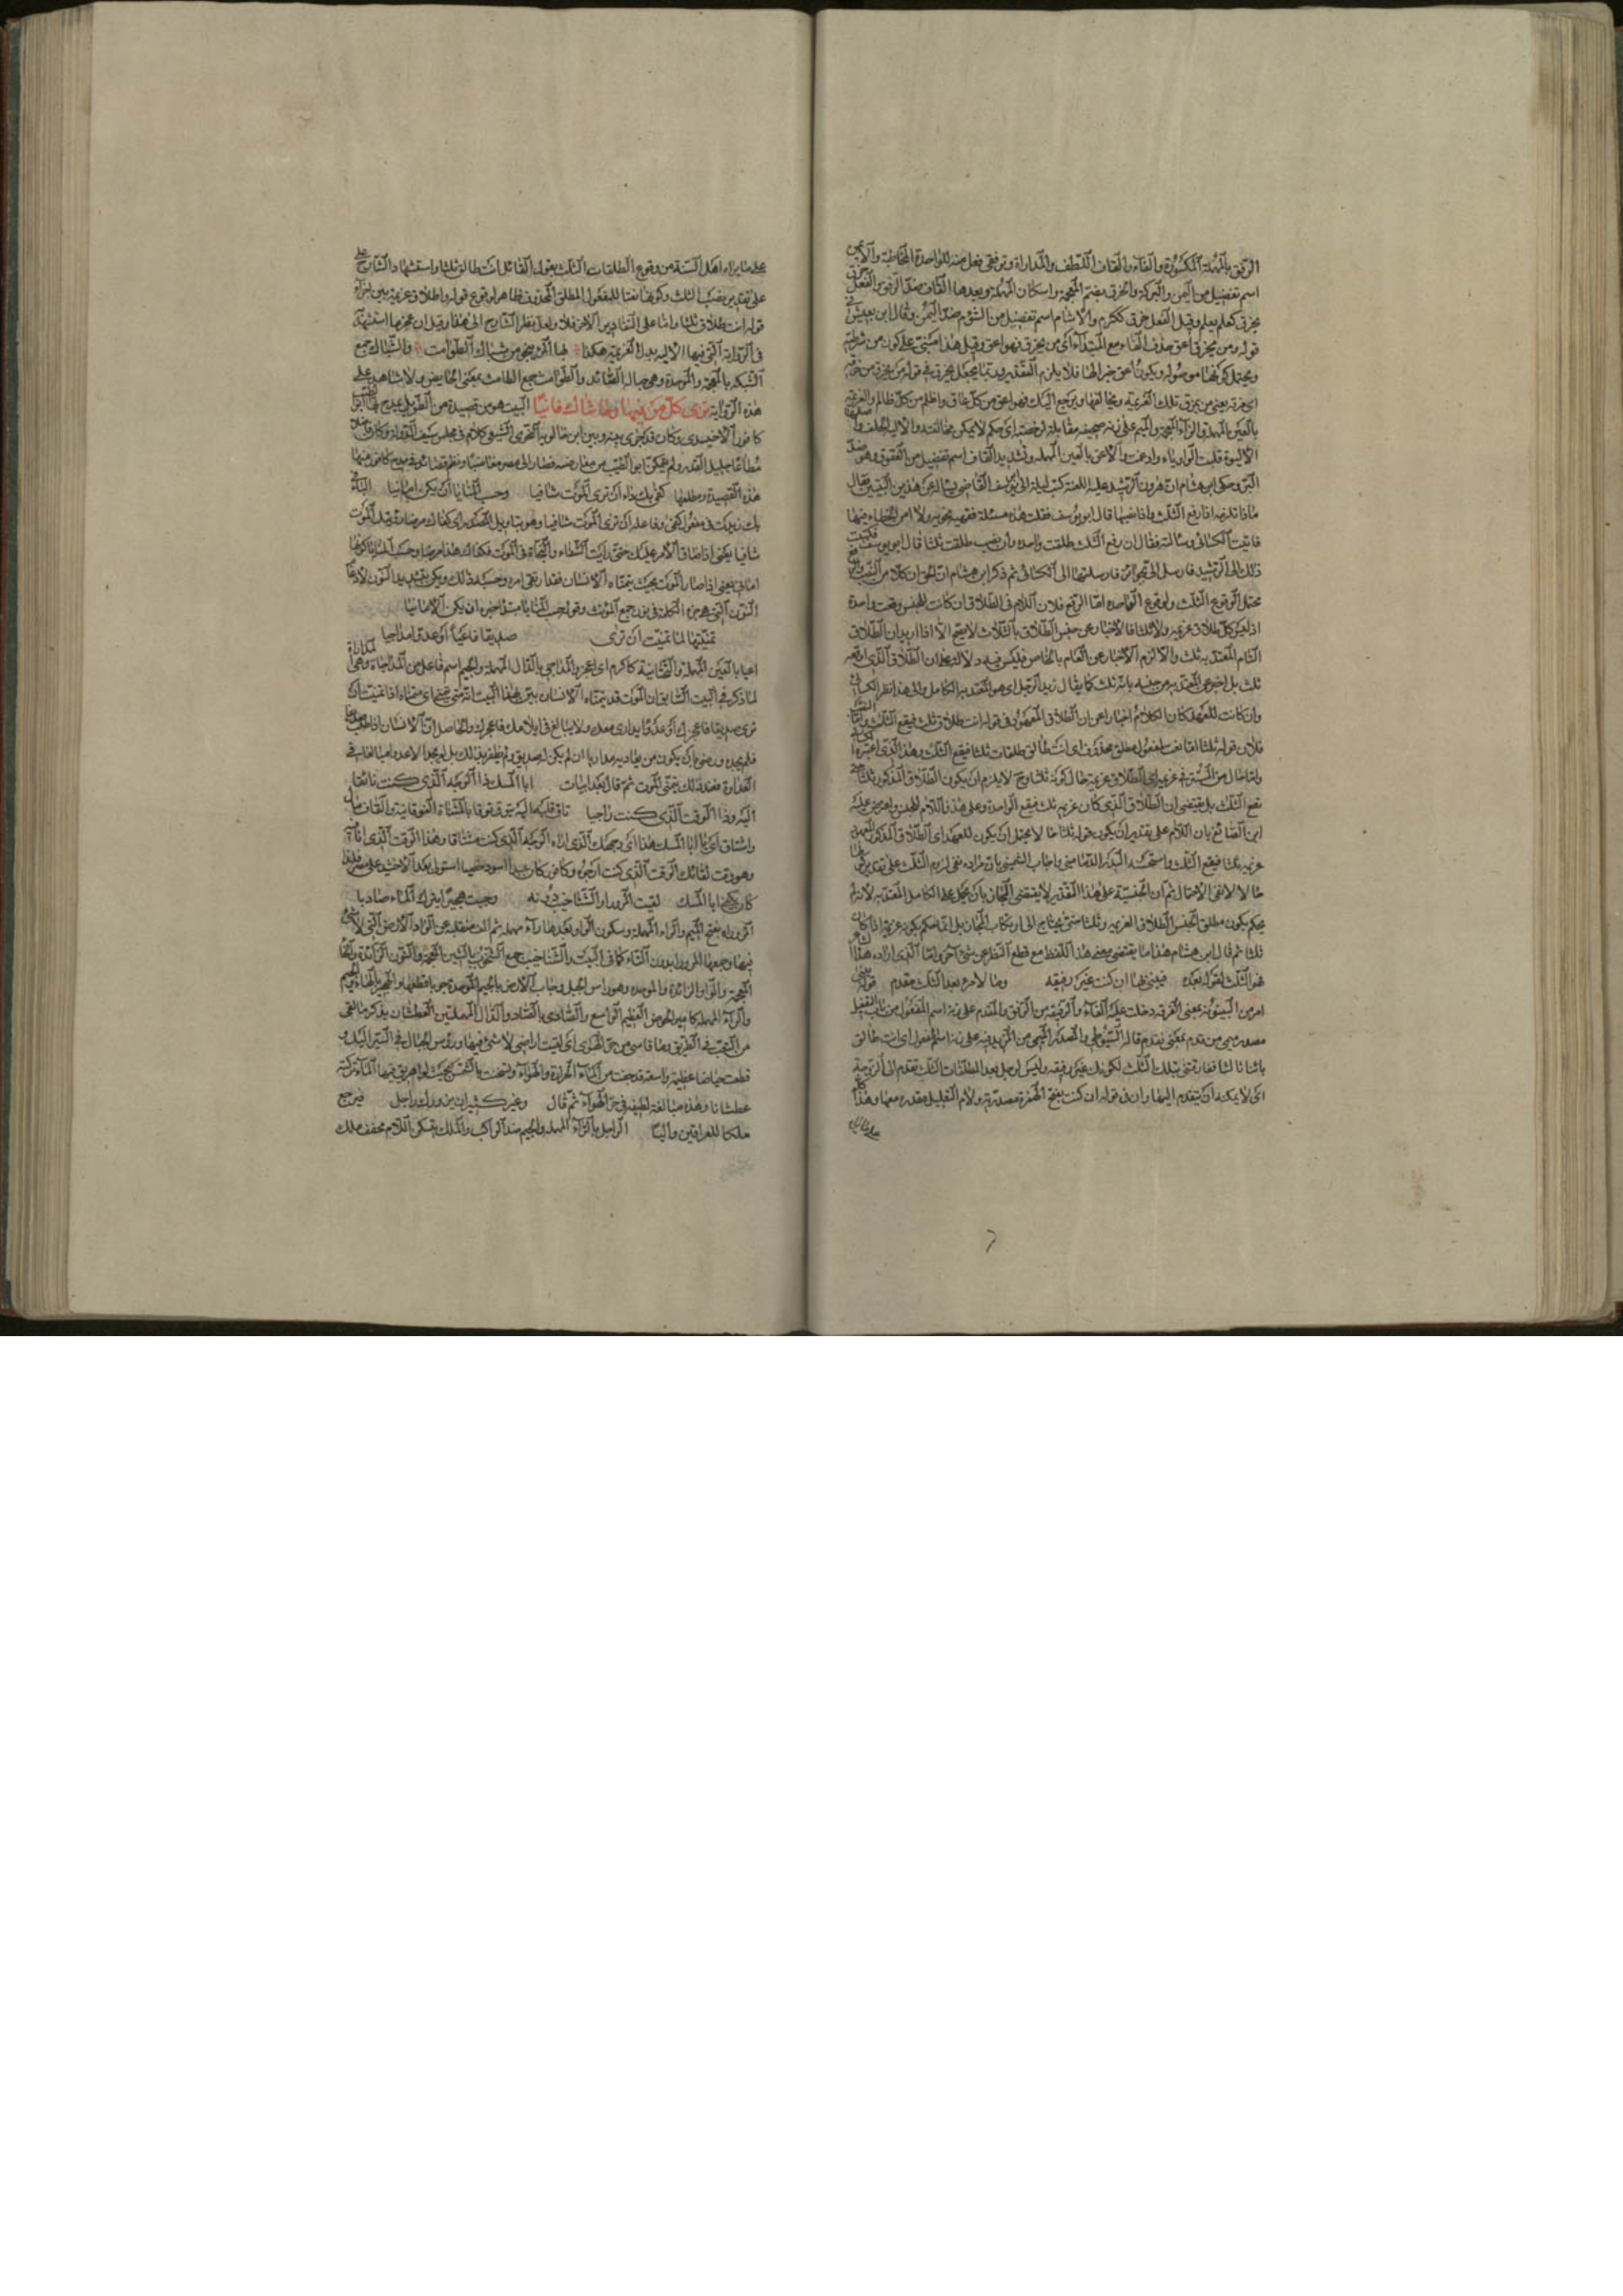 الرفق بالمهملة المكسورة والفاء والقاف اللطف والمداراة وترفقي فعل منه للواحدة المخاطبة والايمن
اسم تفضيل من اليمن والبركة والخرق بضم المعجمة واسكان المهملة وبعدها القاف ضد الرفق والفعل خرق
يخرق كعلم يعلم وقيل الفعل خرق ككرم والاشام اسم تفضيل من الشؤم ضد اليمن وقال ابن يعيش في
قوله ومن يخرق اعق حذف الفاء مع المبتدأ اى من يخرق فهو اعق وقيل هذا مبني على كون من شرطية
ويحتمل كونها موصولة ويكون اعق خبرا لها فلا يلزم التقدير وربما يجعل يخرق في قوله من يخرق من خرقه
اى مزقه يعني من يمزق تلك العزيمة ويخالفها ويرجع اليك فهو اعق من كل عاق واظلم من كل ظالم والعزيمة
بالعين المهملة والزاء المعجمة والميم على زنة صحيفة مقابلة لرخصة اى حكم لا يمكن مخالفته والالية الحلف واصلها
الاليوة قلبت الواو ياء وادغمت والاعق بالعين المهملة وتشديد القاف اسم تفضيل من العقوق وهو ضد
البر وحكى ابن هشام ان هرون الرشيد عليه اللعنة كتب ليلة الى ابى يوسف القاضى يساله عن هذين البيتين فقال
ماذا تلزمه اذا رفع الثلث واذا نصبها قال ابو يوسف فقلت هذه مسئلة فقهية نحوية ولا امن الخطاء فيها
فاتيت الكسائى وسالته فقال ان رفع الثلث طلقت واحدة وان نصب طلقت ثلثا قال ابو يوسف فكتبت
ذلك الى الرشيد فارسل الى بجوائز فارسلتها الى الكسائى ثم ذكر ابن هشام ان الحق ان كلا من النصب والرفع
محتمل لوقوع الثلث ولوقوع الواحدة اما الرفع فلان اللام فى الطلاق ان كانت للجنس وقعت واحدة
اذ ليس كل طلاق عزيمة ولا ثلثا فالاخبار عن جنس الطلاق بالثلاث لا يصح الا اذا اريد ان الطلاق
التام المعتد به ثلث والا لزم الاخبار عن العام بالخاص فليس فيه دلالة على ان الطلاق الذى اوقعه
ثلث بل اخبر عن المعتد به من جنسه بانه ثلث كما يقال زيد الرجل اى هو المعتد به الكامل والى هذا نظر الكسائى
وان كانت للعهد كان الكلام اخبارا عن ان الطلاق المعهود فى قوله انت طلاق ثلث فيقع الثلث واما النصب
فلان قوله ثلثا اما نصب لمفعول مطلق محذوف اى انت طالق طلقات ثلثا فيقع الثلث وهذا الذى اعتبره الكسائى
واما حال من المستتر فى عزيمة اى الطلاق عزيمة حال كونه ثلثا وح لا يلزم ان يكون الطلاق المذكور ثلثا حتى
تقع الثلث بل يقتضى ان الطلاق الذى كان عزيمة ثلث فيقع الواحدة وعلى هذا فاللام للجنس واعترض عليه
ابن الصائغ بان اللام على تقدير ان يكون قوله ثلثا حالا يحتمل ان يكون للعهد اى الطلاق المذكور المعهود
عزيمة ثلثا فيقع الثلث واستحسنه البدر الدمامينى واجاب الشمنى بان مراده نفى لزوم الثلث على تقدير كونها
حالا لا نفى الاحتمال ثم ان الجنسية على هذا التقدير لا يقتضى المجاز بان يحمل على الكامل المعتد به لانه لم
يحكم بكون مطلق الجنس الطلاق العزيمة وثلثا حتى يحتاج الى ارتكاب المجاز بل انما حكم بكونه عزيمة اذا كان
ثلثا ثم قال ابن هشام هذا ما يقتضى معنى هذا اللفظ مع قطع النظر عن شئ آخر واما الذى اراده هذا الشاعر
فهو الثلث لقوله بعده فبينى بها ان كنت غير رفيقة وما لامرء بعد الثلث مقدم قوله بينى
امر من البينونة بمعنى الفرقة دخلت عليه الفاء والرفيقة من الرفق والمقدم على زنة اسم المفعول من باب التفعيل
مصدر ميمى من قدم بمعنى تقدم قاله السيوطى والمصدر الميمى من المزيد فيه على زنة اسم المفعول اى انت طالق
باثنا ثلثا ففارقتى بتلك الثلث لكونك غير رفيقة وليس لرجل بعد الطلقات الثلث تقدم الى الزوجية
اى لا يمكنه ان يتقدم اليها وان فى قوله ان كنت بفتح الهمزة مصدرية ولام التعليل مقدرة معها وهذا كله
على ما يراه اهل السنة من وقوع الطلقات الثلث بقول القائل انت طالق ثلثا واستشهاد الشارح على
على تقدير نصب الثلث وكونها نعتا للمفعول المطلق المحذوف ظاهر لوقوع قوله والطلاق عزيمة بين اجزاء
قوله انت طلاق ثلثا واما على التقادير الآخر فلا ولعل نظر الشارح الى هذا وقيل ان عجزها استشهاد
فى الرواية التى فيها الالية بدل العزيمة هكذا فيا المرء ينجو من شباك الطوامث والشباك جمع
الشبكة بالمعجمة والموحدة وهى حبالة الصائد والطوامث جمع الطامث بمعنى الحائض ولا شاهد على
هذه الرواية ترى كل من فيها وحاشاك فانيا البيت هو من قصيدة من الطويل يمدح بها ابو الطيب
كافور الاخشيدى وكان قد جرى بينه وبين ابن خالويه النحوى الشيعى كلام فى مجلس سيف الدولة وكان
مطاعا جليل القدر ولم يمكن ابو الطيب من معارضة فصار الى مصر مغاضبا ونظم قصائد فى مدح كافور منها
هذه القصيدة ومطلعها كفى بك داء ان ترى الموت شافيا وحسب المنايا ان يكن امانيا الباء فى
بك زيدت فى مفعول كفى وفاعله ان ترى الموت شافيا وهو بتاويل المصدر اى كفاك مرضا رؤيتك الموت
شافيا يعنى اذا ضاق الامر عليك حتى رايت الشفاء والنجاة فى الموت فكفاك هذا مرضا وحسب المنايا كونها
امانى يعنى اذا صار الموت بحيث يتمناه الانسان فقد ارتقى امره وحسبه ذلك ويكن بتشديد النون لادغام
النون التى هى جزء الكلمة فى نون جمع المؤنث وقوله حسب المنايا مبتدأ خبره ان يكن الامانيا
تمنيتها لما تمنيت ان ترى صديقا فاعيا او عدوا مداجيا
اعيا بالعين المهملة والتحتانية كاكرم اى اعجز والمداجى بالدال المهملة والجيم اسم فاعل من المداجاة وهى المداراة
لما ذكر فى البيت السابق ان الموت قد يتمناه الانسان بين بهذا البيت
ترى صديقا فاعجزك او عدوا يدارى معك ولا يبالغ فى ايلامك فاعجزك والحاصل ان الانسان اذا طلب صديقا
فلم يجده ورضى بان يكون من يعاديه مداريا ان لم يكن له صديق ولم يظفر بذلك بل لم يجد الا عدوا مبالغا فى
العداوة فعند ذلك يتمنى الموت ثم قال بعد ابيات ابا المسك ذا الوجه الذى كنت تائقا
اليه وذا الوقت الذى كنت راجيا تاق قلبه اليه يتوق توقا بالمثناة الفوقانية والقاف مال
واشتاق اى يا ابا المسك هذا اى وجهك الذى اراه الوجه الذى كنت مشتاقا وهذا الوقت الذى انا فيه
وهو وقت لقائك الوقت الذى كنت ارجوه وكافور كان عبدا اسود خصيا استولى بعد الاخشيد على مصر فلذا
كان يكنى ابا المسك لقيت المرورا والشناخيب دونه وجبت هجيرا يترك الماء صاديا
المروراة بفتح الميم والراء المهملة وسكون الواو وبعدها راء مهملة ثم الف منقلبة عن الواو الارض التى لا شئ
فيها وجمعها المرورا بدون التاء كما فى البيت والشناخيب جمع الشنخوب بالشين المعجمة والنون الزائدة والخاء
المعجمة والواو الزائدة والموحدة وهو راس الجبل وجاب الارض بالجيم الموحدة جوبا قطعها والهجير بالهاء والجيم
والراء المهملة كامير الحوض العظيم الواسع والصادى بالصاد والدال المهملتين العطشان يذكر ما لقى
من التعب فى الطريق وما قاسى من حر الهوى اى لقيت اراضى لا شئ فيها ورؤس الجبال فى السير اليك و
قطعت حياضا عظيمة واسعة قد جفت من الماء لحرارة الهواء واسخنت بالشمس بحيث لو اهريق فيها الماء تركته
عطشانا وهذه مبالغة لطيفة فى حر الهواء ثم قال وغير كثير ان يزورك راجل فيرجع
ملكا للعراقين واليا الراجل بالراء المهملة والجيم ضد الراكب والملك بسكون اللام مخفف ملك